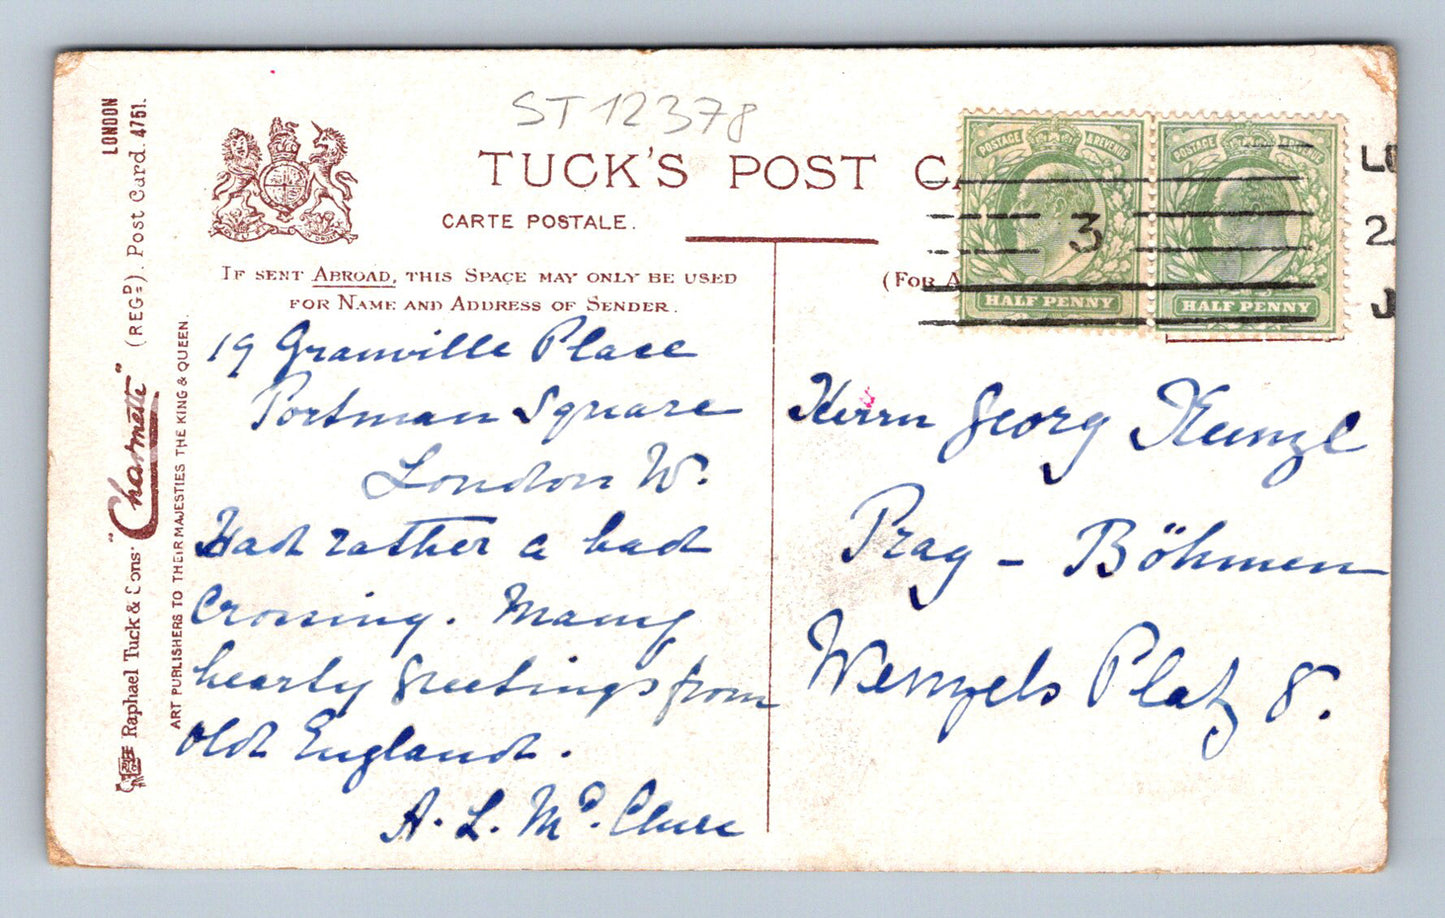 ST 12378
TUCK'S POST C
CARTE POSTALE.
IF SENT ABROAD, THIS SPACE MAY ONLY BE USED
FOR NAME AND ADDRESS OF SENDER.
(FOR A
POSTAGE & REVENUE
HALF PENNY
POSTAGE & REVENUE
HALF PENNY
3
19 Granville Place
Portman Square
London W.
Had rather a bad
Crossing. Many
hearty Greetings from
Old England.
A. L. McClure
Herrn Georg Kunze
Prag - Böhmen
Wenzels Platz 8.
LONDON
Raphael Tuck & Sons' "Charmette" (REGD). Post Card. 4751.
ART PUBLISHERS TO THEIR MAJESTIES THE KING & QUEEN.